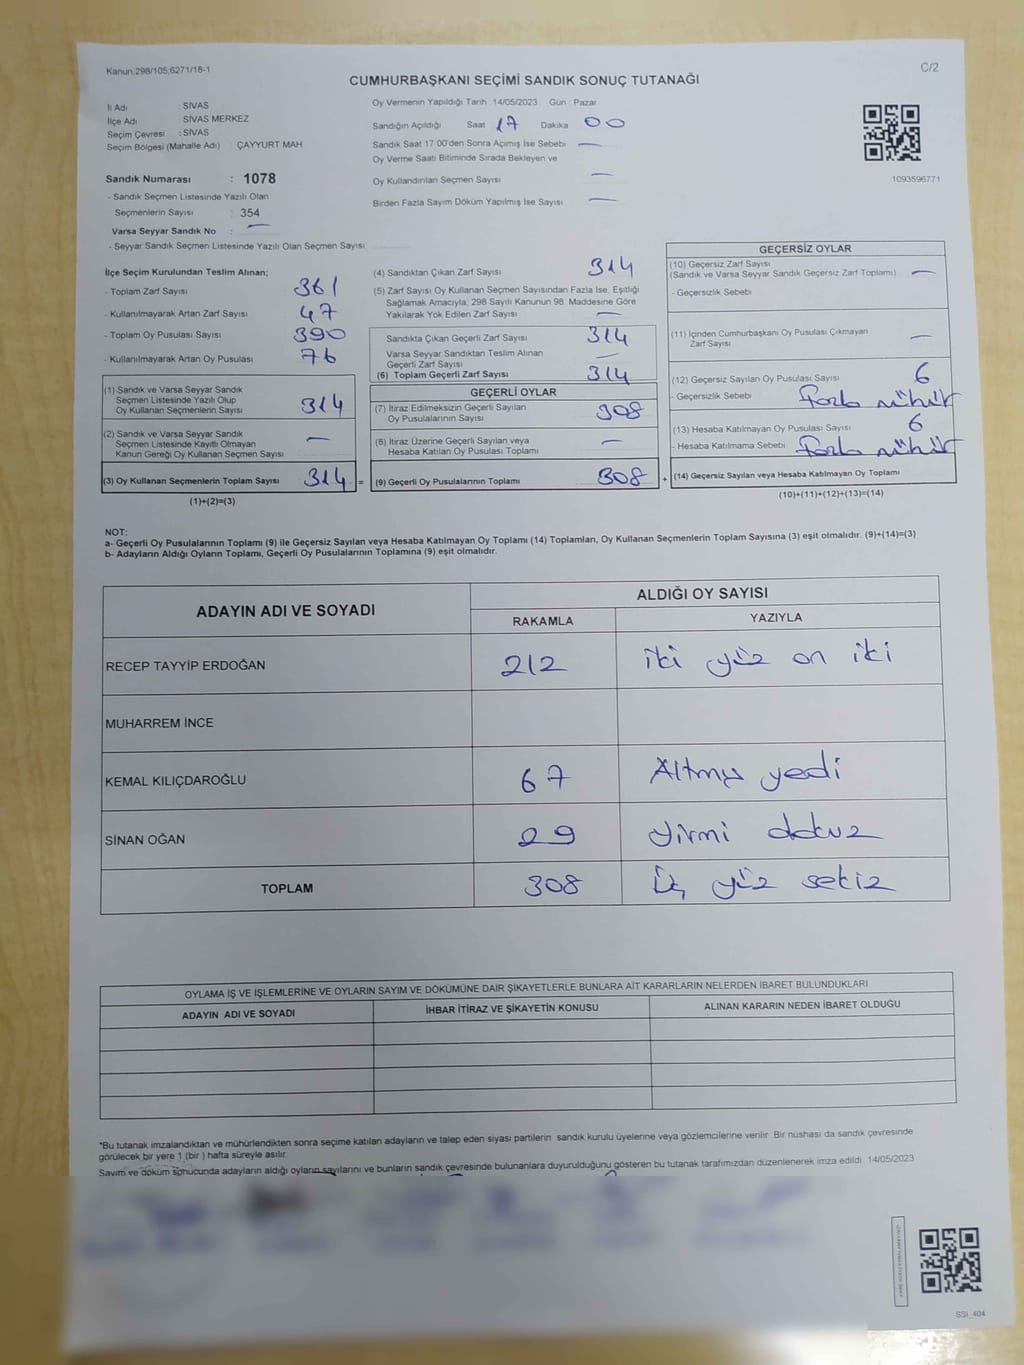 Kanun;298/105;6271/18-1
C/2
CUMHURBAŞKANI SEÇİMİ SANDIK SONUÇ TUTANAĞI
İl Adı : SİVAS
İlçe Adı SİVAS MERKEZ
Seçim Çevresi : SİVAS
Seçim Bölgesi (Mahalle Adı) : ÇAYYURT MAH
Sandık Numarası : 1078
- Sandık Seçmen Listesinde Yazılı Olan
Seçmenlerin Sayısı : 354
Varsa Seyyar Sandık No : —
- Seyyar Sandık Seçmen Listesinde Yazılı Olan Seçmen Sayısı
Oy Vermenin Yapıldığı Tarih : 14/05/2023 Gün : Pazar
Sandığın Açıldığı Saat 17 Dakika 00
Sandık Saat 17:00'den Sonra Açımış İse Sebebi —
Oy Verme Saati Bitiminde Sırada Bekleyen ve
Oy Kullandırılan Seçmen Sayısı —
Birden Fazla Sayım Döküm Yapılmış İse Sayısı —
1093596771
İlçe Seçim Kurulundan Teslim Alınan;
- Toplam Zarf Sayısı 361
- Kullanılmayarak Artan Zarf Sayısı 47
- Toplam Oy Pusulası Sayısı 390
- Kullanılmayarak Artan Oy Pusulası 76
(1) Sandık ve Varsa Seyyar Sandık
Seçmen Listesinde Yazılı Olup
Oy Kullanan Seçmenlerin Sayısı 314
(2) Sandık ve Varsa Seyyar Sandık
Seçmen Listesinde Kayıtlı Olmayan
Kanun Gereği Oy Kullanan Seçmen Sayısı —
(3) Oy Kullanan Seçmenlerin Toplam Sayısı 314 =
(1)+(2)=(3)
(4) Sandıktan Çıkan Zarf Sayısı 314
(5) Zarf Sayısı Oy Kullanan Seçmen Sayısından Fazla İse, Eşitliği
Sağlamak Amacıyla, 298 Sayılı Kanunun 98. Maddesine Göre
Yakılarak Yok Edilen Zarf Sayısı —
Sandıkta Çıkan Geçerli Zarf Sayısı 314
Varsa Seyyar Sandıktan Teslim Alınan
Geçerli Zarf Sayısı —
(6) Toplam Geçerli Zarf Sayısı 314
GEÇERLİ OYLAR
(7) İtiraz Edilmeksizin Geçerli Sayılan
Oy Pusulasının Sayısı 308
(8) İtiraz Üzerine Geçerli Sayılan veya
Hesaba Katılan Oy Pusulası Toplamı —
(9) Geçerli Oy Pusulalarının Toplamı 308 +
GEÇERSİZ OYLAR
(10) Geçersiz Zarf Sayısı
(Sandık ve Varsa Seyyar Sandık Geçersiz Zarf Toplamı) —
- Geçersizlik Sebebi
(11) İçinden Cumhurbaşkanı Oy Pusulası Çıkmayan
Zarf Sayısı —
(12) Geçersiz Sayılan Oy Pusulası Sayısı 6
- Geçersizlik Sebebi fazla mühür
(13) Hesaba Katılmayan Oy Pusulası Sayısı 6
- Hesaba Katılmama Sebebi fazla mühür
(14) Geçersiz Sayılan veya Hesaba Katılmayan Oy Toplamı
(10)+(11)+(12)+(13)=(14)
NOT:
a- Geçerli Oy Pusulalarının Toplamı (9) ile Geçersiz Sayılan veya Hesaba Katılmayan Oy Toplamı (14) Toplamları, Oy Kullanan Seçmenlerin Toplam Sayısına (3) eşit olmalıdır. (9)+(14)=(3)
b- Adayların Aldığı Oyların Toplamı, Geçerli Oy Pusulalarının Toplamına (9) eşit olmalıdır.
ADAYIN ADI VE SOYADI ALDIĞI OY SAYISI
RAKAMLA YAZIYLA
RECEP TAYYİP ERDOĞAN 212 iki yüz on iki
MUHARREM İNCE
KEMAL KILIÇDAROĞLU 67 Altmış yedi
SİNAN OĞAN 29 yirmi dokuz
TOPLAM 308 üç yüz sekiz
OYLAMA İŞ VE İŞLEMLERİNE VE OYLARIN SAYIM VE DÖKÜMÜNE DAİR ŞİKAYETLERLE BUNLARA AİT KARARLARIN NELERDEN İBARET BULUNDUKLARI
ADAYIN ADI VE SOYADI İHBAR İTİRAZ VE ŞİKAYETİN KONUSU ALINAN KARARIN NEDEN İBARET OLDUĞU
*Bu tutanak imzalandıktan ve mühürlendikten sonra seçime katılan adayların ve talep eden siyası partilerin sandık kurulu üyelerine veya gözlemcilerine verilir. Bir nüshası da sandık çevresinde
görülecek bir yere 1 (bir ) hafta süreyle asılır.
Sayım ve döküm sonucunda adayların aldığı oyların sayılarını ve bunların sandık çevresinde bulunanlara duyurulduğunu gösteren bu tutanak tarafımızdan düzenlenerek imza edildi. 14/05/2023
SSI_404